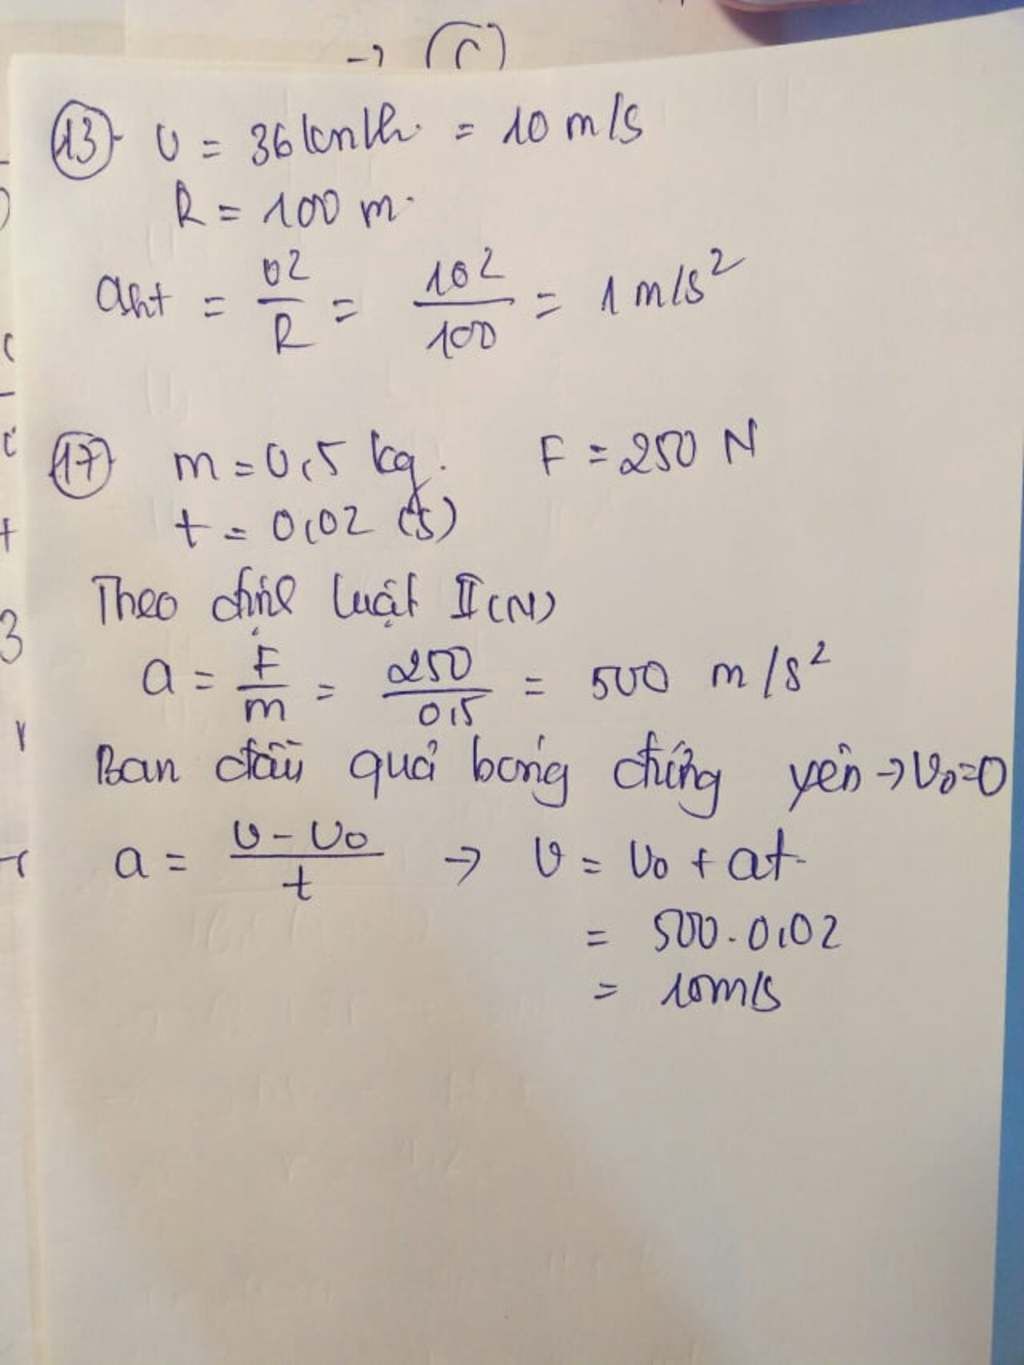 → (C)
(13) v = 36km/h. = 10 m/s
R = 100 m.
aht = v²/R = 10²/100 = 1 m/s²
(17) m = 0,5 kg. F = 250 N
t = 0,02 (s)
Theo định luật II (N)
a = F/m = 250/0,5 = 500 m/s²
Ban đầu quả bóng đứng yên → v₀=0
a = v - v₀/t → v = v₀ + at
= 500.0,02
= 10m/s